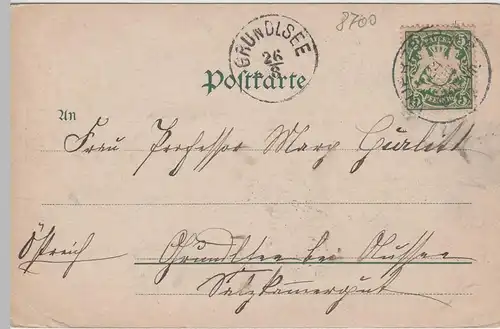 8700
GRUNDLSEE
26
8
BAYERN
5 5
Postkarte
An
Frau Professor Mary Gurlitt
Östreich
Grundlsee bei Aussee
Salzkammergut